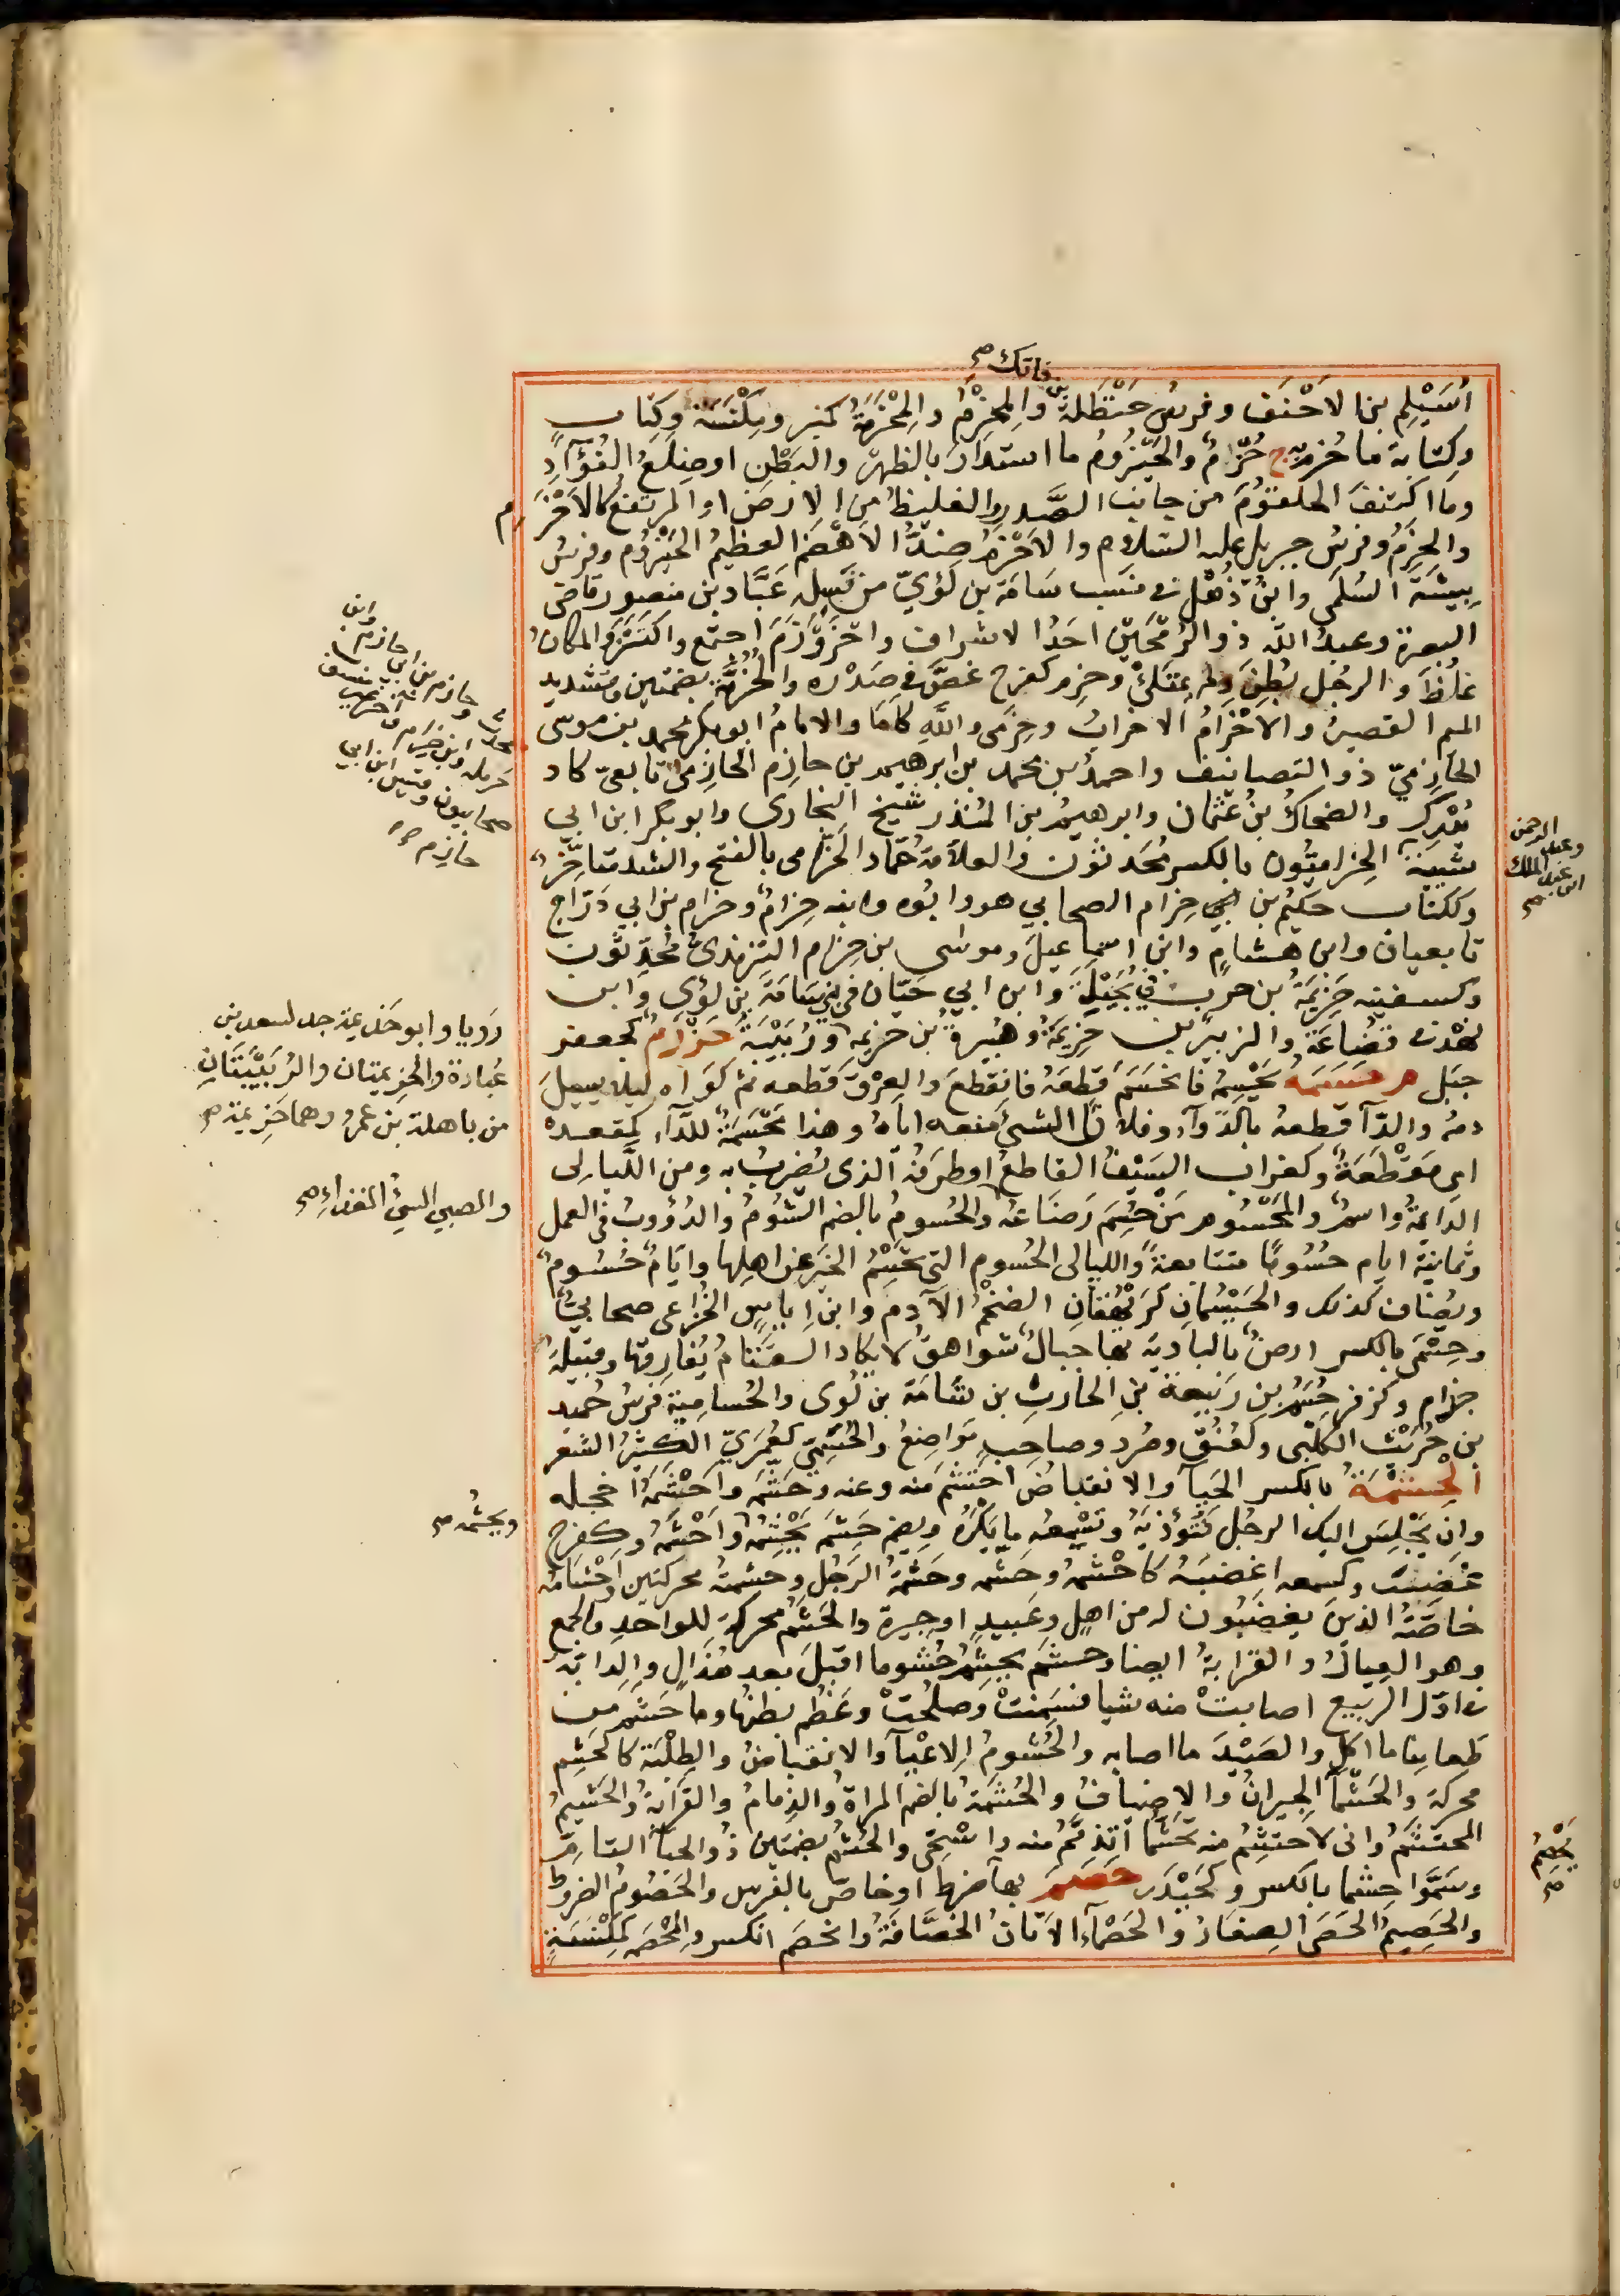 بن فاتك صح
أُسَيْلِم بن الاَحْنَف وفرسُ حَنْظَلَةَ والمِحْزَمُ والمِحْزَمَةُ كمنبر ومِكْنَسَة وكِتاب
وكِتابة ما حُزِمَ به ج حُزُمٌ والحَيْزُومُ ما استَدَارَ بالظهر والبَطْنِ او ضِلَعُ الفُؤَادِ
وما اكتنفَ الحلقومَ من جانب الصَّدر والغليظُ من الارضِ او المرتفعُ كالاَحْزَم
والحِزَمِ وفرس جبريل عليه السّلام والاَحْزَمُ ضِدُّ الاَهْضَم العظيمُ الحَيْزُوم وفرسُ
بِيشَة السُلَمى وابنُ ذُهْل في نسب سَامَة بن لُؤيّ من نَسله عَبَّاد بن منصور قاضى
البصرة وعبدُ الله ذو الرُّمْحَيْن احَدُ الاشراف واحْزَوْزَمَ اجتمع واكتَنَز والمكانُ
غلُظَ والرجُل بُطِنَ ولم يمتَلِئْ وحزِم كفرح غصَّ في صَدْره والحُزُمَّة بضمتين وتشديد
الميم القصيرُ والاَحْزَامُ الاحزابُ وحَزْمَى والله كأَمَا والامامُ ابوبكر محمد بن موسى
الحَازِمِيّ ذو التصانيف واحمدُ بن محمد بن ابرهيم بن حازم الحَازِمىّ تابعىّ كاد
يُدْرِك والضحاكُ بنُ عُثمان وابرهيمُ بن المُنذر شيخ البخارى وابوبكر ابن ابى
شَيْبَة الحِزاميّون بالكسر مُحَدثون والعلاّمة حُمّاد الحَزّامى بالفتح والشد متأخِّرٌ
وككتاب حكيمُ بن حِزام الصحابي هو وابُوه وابنه حِزامٌ وحِزام بن ابي دَرّاج
تابعيان وابن هشام وابن اسماعيلَ وموسى بن حِزام التِرمذىّ مُحَدِّثون
وكسفينه حَزِيمَةُ بن حرب في بَجِيْلَةَ وابن ابي حَيّان في بني سَامَة بن لؤى وابن
نَهْدٍ في قُضَاعَة والزبير بن حزيمَة وهُبَيرة بن حزيمه ورُبَيْبَة حَزْرَمٌ كجعفر
جبَل حَسَمَه يَحْسِمُه فانحَسَمَ قطعَهُ فانقطعَ والعِرْقَ قطعه ثم كوَاه ليلا يسيلَ
دمُه والدَّآ قطعه بالدّوآء وفلاناً الشىءَ منعه اياه وهذا مَحْسَمَةٌ للدَّآء كمقعده
اى مَقْطَعَةٌ وكغراب السَيْفُ القاطعُ او طرفُه الذى يُضربُ به ومن الليالى
الدّايمةُ واسمٌ والمَحْسُوم مَنْ حُسِمَ رَضَاعه والحُسومُ بالضم الشُّومُ والدُؤُوبُ في العمل
وثمانيةَ ايام حُسُومًا متتابعةً والليالى الحُسوم التى تحْسِمُ الخيرَ عن اهلِها وايّامٌ حُسُومٌ
ويُضاف كذلك والحَيْسُمان كرَيْهُقان الضخْمُ الآدم وابن اياس الخُزاعى صحابيٌّ
وحِسْمَى بالكسر ارضٌ بالبادية بها جبالٌ شواهقُ لا يكاد القَتَامُ يُفارِقُها وقبيلةُ
جذام وكزفر حُسَمُ بن ربيعة بن الحارث بن سَامَة بن لُؤى والحُسامية فرَسُ حُميد
بن حُرَيْث الكَلْبى وكعُنُق وصُرد وصاحِب مَوَاضِعُ والحُسَمِيّ كعُمَرِيّ الكثيرُ الشعر
الحِشْمَةُ بالكسر الحَيَآ والانقباضُ احتشَمَ منه وعنه وحَشَمه واحْشَمَه اخجله
وان يَجْلِسَ اليك الرجُل فتُؤذيَهُ وتُسْمِعه ما يكرَه ويضم حَشَمَ يَحْشِمُه واَحْشَمَه وكفرح
غضِبَ وكسمعه اغضَبَهُ كاحْشمه وحشّمه وحَشْمَةُ الرَجُل وحشمُه محركتين واَحْشامُه
خاصّتهُ الذينَ يغضَبُون له من اهلٍ وعَبيدٍ اوجِيرة والحَشَمُ محركة للواحدِ والجمع
وهو العِيالُ والقرابةُ ايضا وحشَم يحشِمُ حُشوما اقبلَ بعد هُزالٍ والدابّة
في اوّل الربيع اصابتْ منه شيا فسَمِنتْ وصلُحتْ وعَظُم بطنُها وما حَشَم من
طعامِنا ما اكلَ والصَيْدَ ما اصابه والحُشومُ الاعْيَآ والانقباضُ والطِلْبَة كالحَشم
محركة والحُشَمَآ الجيرانُ والاضيافُ والحُشْمَة بالضم المراة والذِمامُ والقَرَابَة والحَشيمُ
المحتشَمُ وانى لاَحتشِمُ منه تحَشُّمًا اتذمَّمُ منه واسْتَحِى والحُشُم بضمتين ذوُو الحيآ التامّ
وسَمَّوا حِشْما بالكسر وكحَيْدَر حَصَمَ بها ضرط او خاصّ بالفرس والحَصُومُ الضروط
والحَصِيمُ الحَصَى الصِغارُ والحَصْمَآء الاَتَانُ الخصَّافَةُ وانحَصَمَ انكسر والمِحْصَمَه كمِكْنَسَةٍ
وابن
حازم
حازم من ابى
حَرمله وابن حِزام
صحابيون وقيس ابن ابى
حازم صح
وعبد الرحمن
ابن عبد الملك
صح
رَويا وابو حَزيمة جد لسعد بن
عُبادة والحَزيمتان والزَبَيْبَتَانِ
من باهلة بن عَمرو وهما حَزيمة صح
والصبي السيُ الغذاءِ صح
ويحشُمه صح
يَحْصِمُ
صح